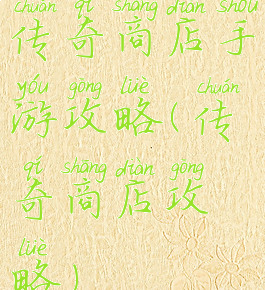 chuán qí shāng diàn shǒu
传奇商店手
yóu gōng lüè chuán
游攻略(传
qí shāng diàn gōng
奇商店攻
lüè
略)